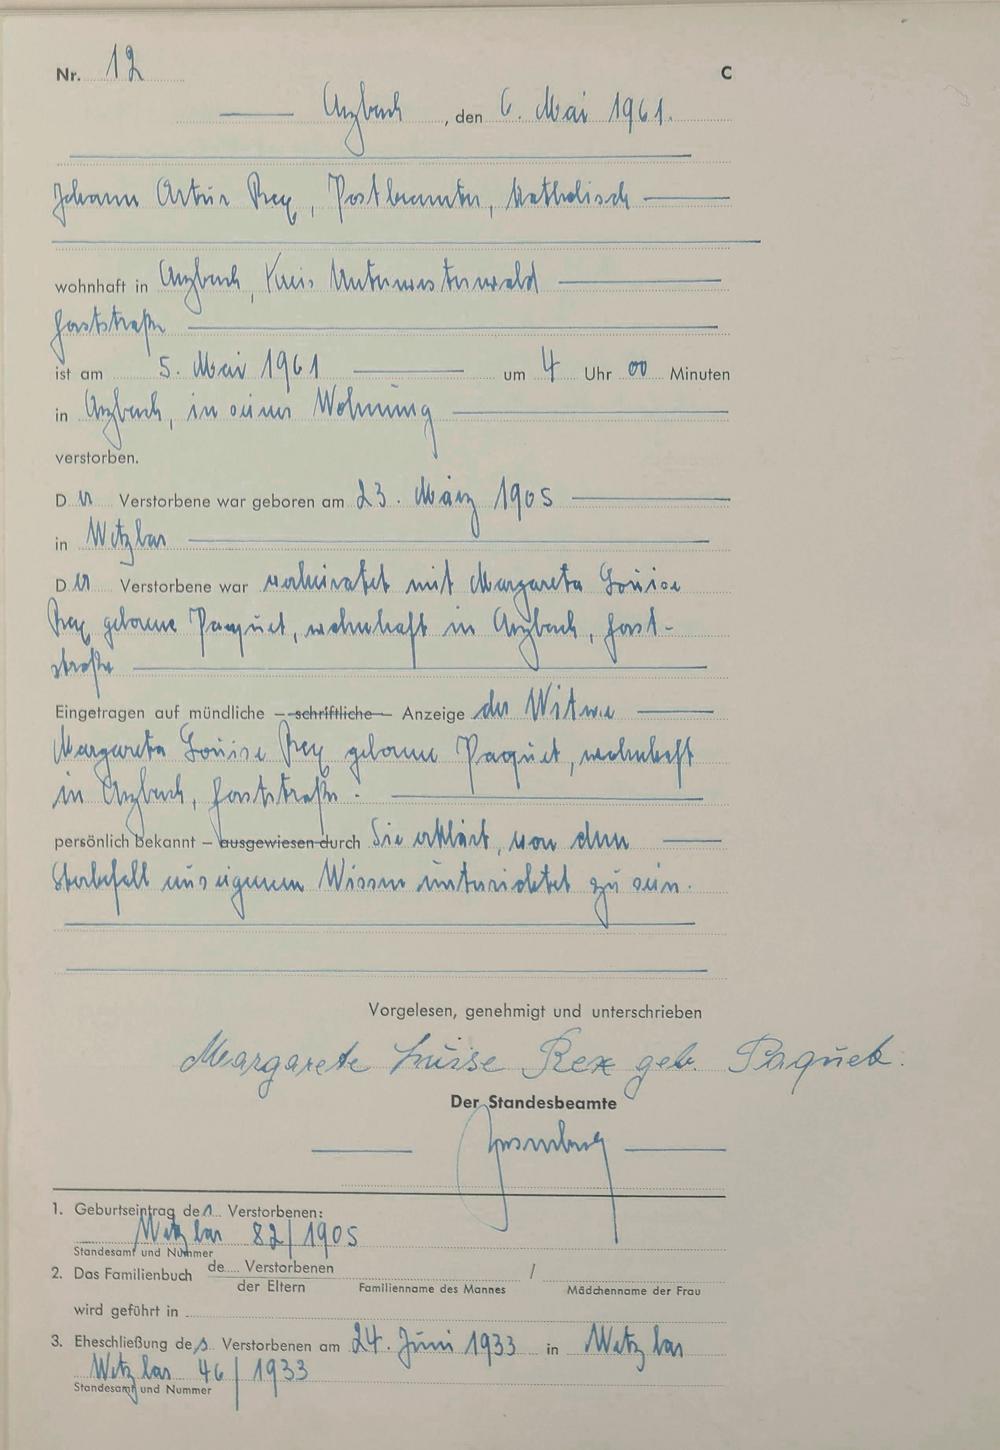 Nr. 12 C
Arzbach, den 6. Mai 1961.
Johann Artur Rex, Postbeamter, katholisch
wohnhaft in Arzbach, Kreis Unterwesterwald
Forststraße
ist am 5. Mai 1961 um 4 Uhr 00 Minuten
in Arzbach, in seiner Wohnung
verstorben.
Der Verstorbene war geboren am 23. März 1905
in Wetzlar
Der Verstorbene war verheiratet mit Margareta Louise
Rex geborene Paquet, wohnhaft in Arzbach, Forst-
straße
Eingetragen auf mündliche – schriftliche – Anzeige der Witwe
Margareta Louise Rex geborene Paquet, wohnhaft
in Arzbach, Forststraße.
persönlich bekannt – ausgewiesen durch Sie erklärt, von dem
Sterbefall aus eigenem Wissen unterrichtet zu sein.
Vorgelesen, genehmigt und unterschrieben
Margarete Luise Rex geb. Paquet.
Der Standesbeamte
1. Geburtseintrag des Verstorbenen:
Wetzlar 82/1905
Standesamt und Nummer
2. Das Familienbuch de Verstorbenen /
der Eltern Familienname des Mannes Mädchenname der Frau
wird geführt in
3. Eheschließung des Verstorbenen am 24. Juni 1933 in Wetzlar
Wetzlar 46/1933
Standesamt und Nummer